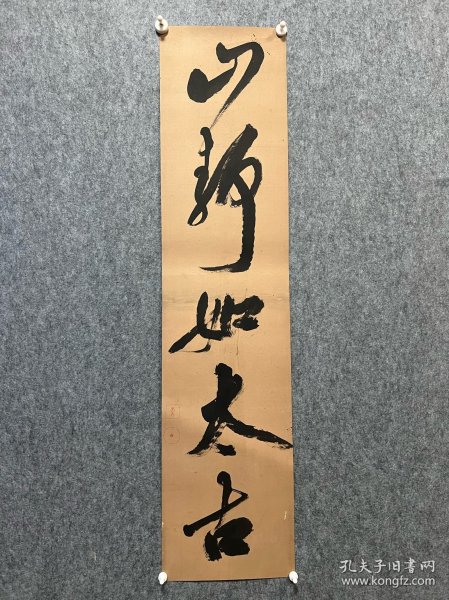 山静如太古
孔夫子旧书网
www.kongfz.com